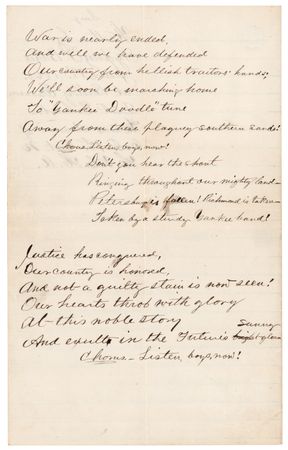 War is nearly ended,
And well we have defended
Our country from hellish traitors' hands!
We'll soon be marching home
To "Yankee Doodle" tune
Away from these plaguey southern sands!
Chorus Listen boys, now!
Don't you hear the shout
Ringing throughout our mighty land—
Petersburg is fallen! Richmond is taken—
Taken by a sturdy Yankee band!
Justice has conquered,
Our country is honored,
And not a guilty stain is now seen!
Our hearts throb with glory
At this noble story
Sunny
And exult in the Future's
Chorus – Listen, boys, now!